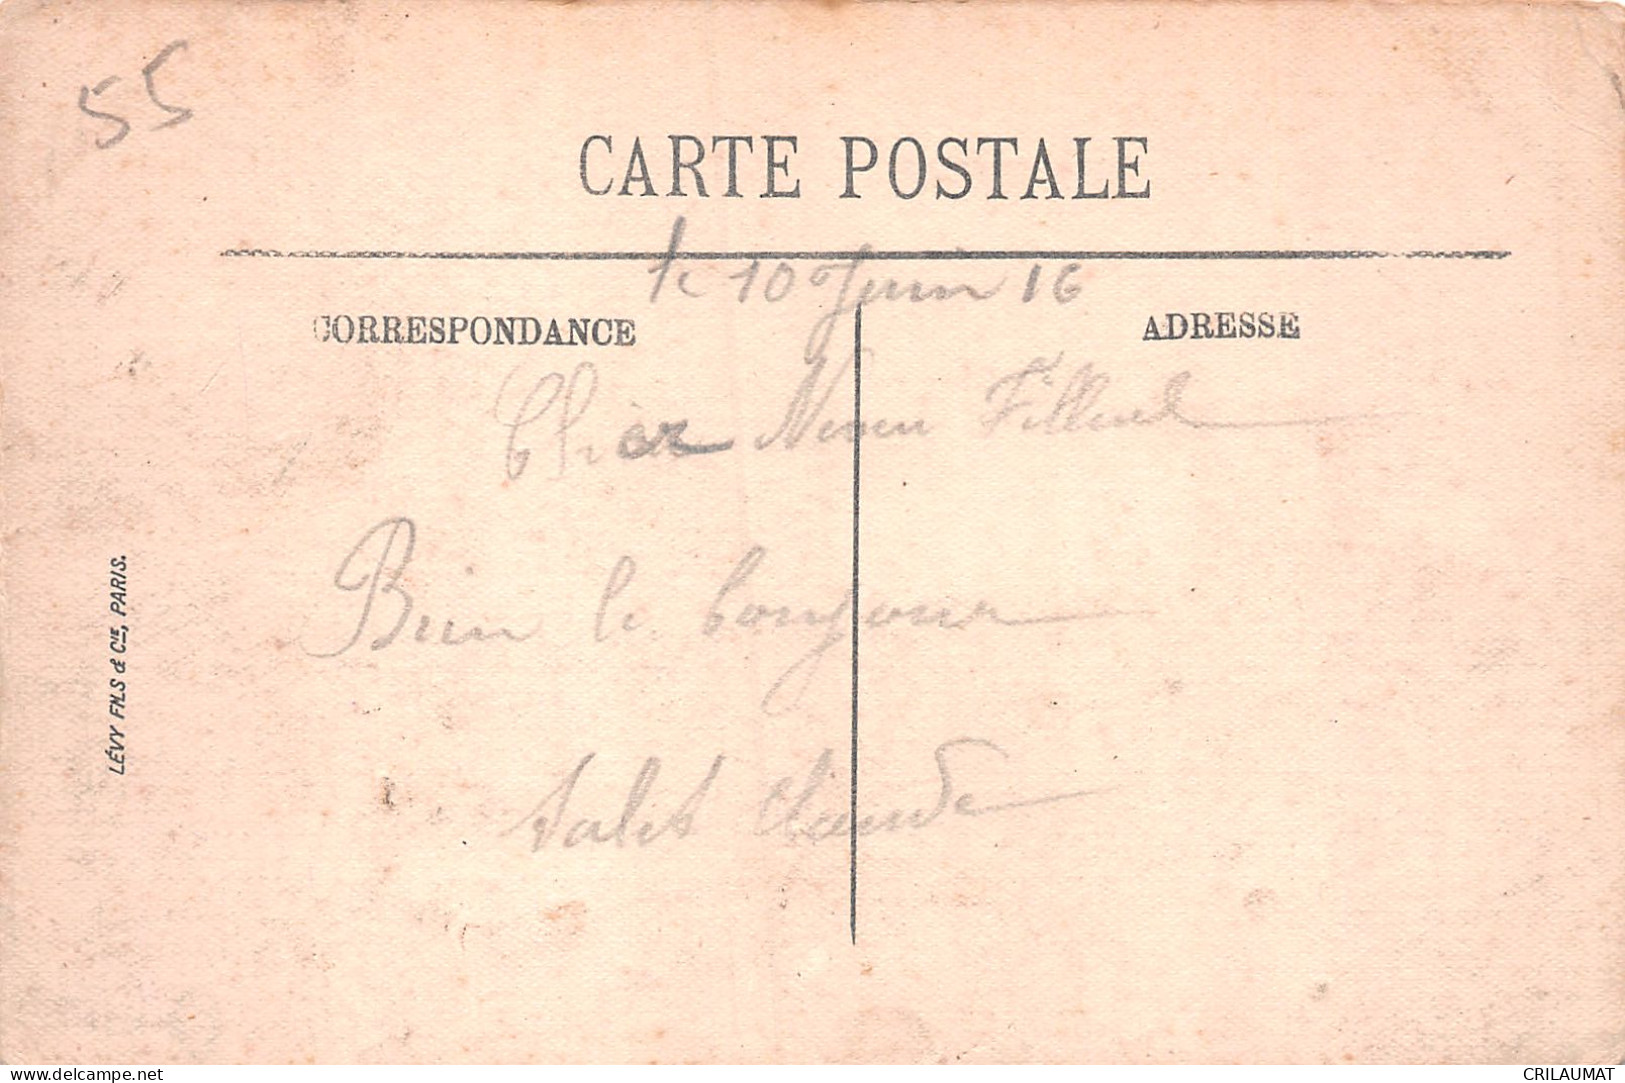 55
CARTE POSTALE
le 10 Juin 16
CORRESPONDANCE
ADRESSE
Cher Neveu Filleul
Bien le bonjour
Claude
LÉVY FILS & CIE, PARIS.
www.delcampe.net
CRILAUMAT